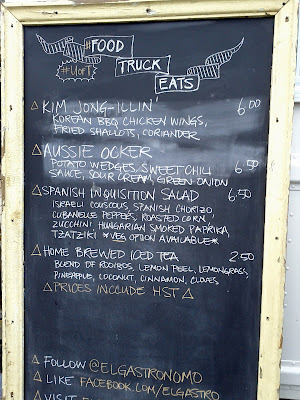 #FOOD
#UOFT
TRUCK
EATS
KIM JONG-ILLIN' 6.00
KOREAN BBQ CHICKEN WINGS,
FRIED SHALLOTS, CORIANDER
AUSSIE OCKER 6.50
POTATO WEDGES, SWEET CHILI
SAUCE, SOUR CREAM, GREEN ONION
SPANISH INQUISITION SALAD 6.50
ISRAELI COUSCOUS, SPANISH CHORIZO,
CUBANELLE PEPPERS, ROASTED CORN
ZUCCHINI HUNGARIAN SMOKED PAPRIKA,
TZATZIKI *VEG OPTION AVAILABLE*
HOME BREWED ICED TEA 2.50
BLEND OF ROOIBOS, LEMON PEEL, LEMONGRASS,
PINEAPPLE, COCONUT, CINNAMON, CLOVES
PRICES INCLUDE HST
FOLLOW @ELGASTRONOMO
LIKE FACEBOOK.COM/ELGASTRO
VISIT